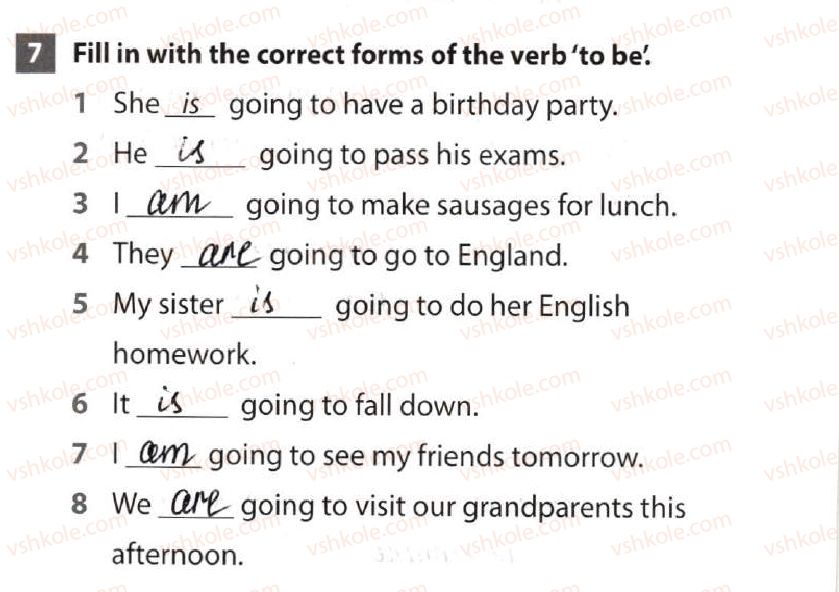 7 Fill in with the correct forms of the verb 'to be'.
1 She is going to have a birthday party.
2 He is going to pass his exams.
3 I am going to make sausages for lunch.
4 They are going to go to England.
5 My sister is going to do her English
homework.
6 It is going to fall down.
7 I am going to see my friends tomorrow.
8 We are going to visit our grandparents this
afternoon.
vshkole.com